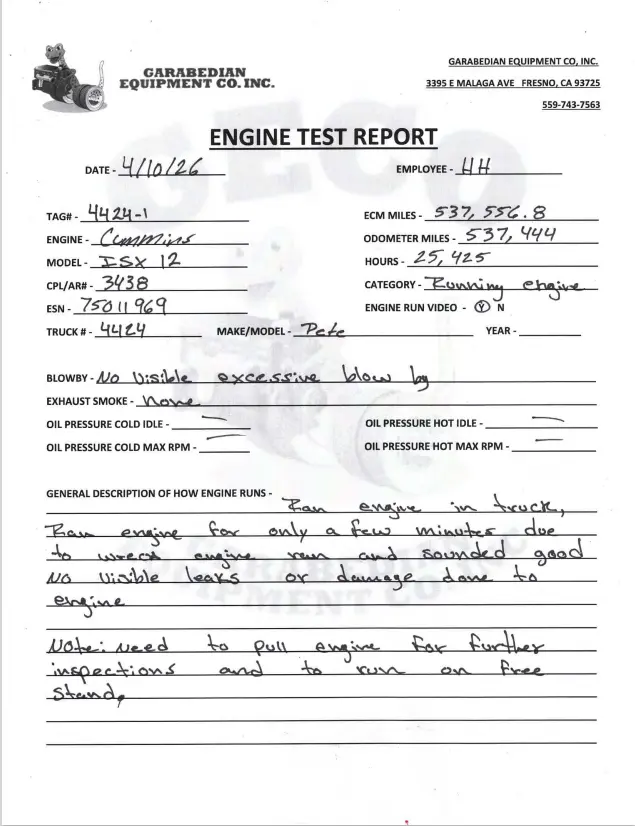 GARABEDIAN
EQUIPMENT CO. INC.
GARABEDIAN EQUIPMENT CO, INC.
3395 E MALAGA AVE FRESNO, CA 93725
559-743-7563
ENGINE TEST REPORT
DATE - 4/10/26 EMPLOYEE - HH
TAG# - 4424-1 ECM MILES - 537,556.8
ENGINE - Cummins ODOMETER MILES - 537,444
MODEL - ISX 12 HOURS - 25,425
CPL/AR# - 3438 CATEGORY - Running engine
ESN - 75011969 ENGINE RUN VIDEO - Y N
TRUCK # - 4424 MAKE/MODEL - Pete YEAR -
BLOWBY - No Visible excessive blow by
EXHAUST SMOKE - None
OIL PRESSURE COLD IDLE - — OIL PRESSURE HOT IDLE - —
OIL PRESSURE COLD MAX RPM - — OIL PRESSURE HOT MAX RPM - —
GENERAL DESCRIPTION OF HOW ENGINE RUNS - Ran engine in truck,
Ran engine for only a few minutes due
to wreck engine run and sounded good
NO Visible leaks or damage done to
engine
Note: Need to pull engine for further
inspections and to run on free
Stand,
GECO
GARABEDIAN
EQUIPMENT CO. INC.